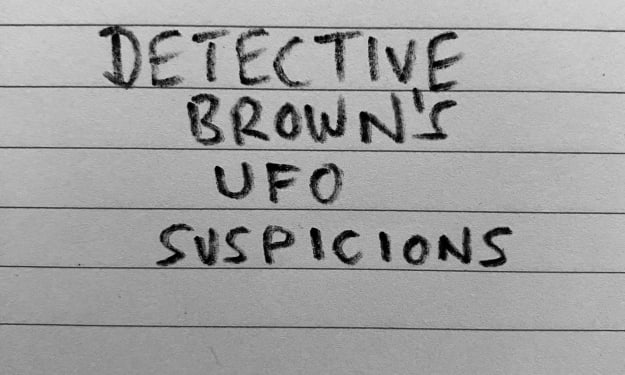 DETECTIVE
BROWN'S
UFO
SUSPICIONS